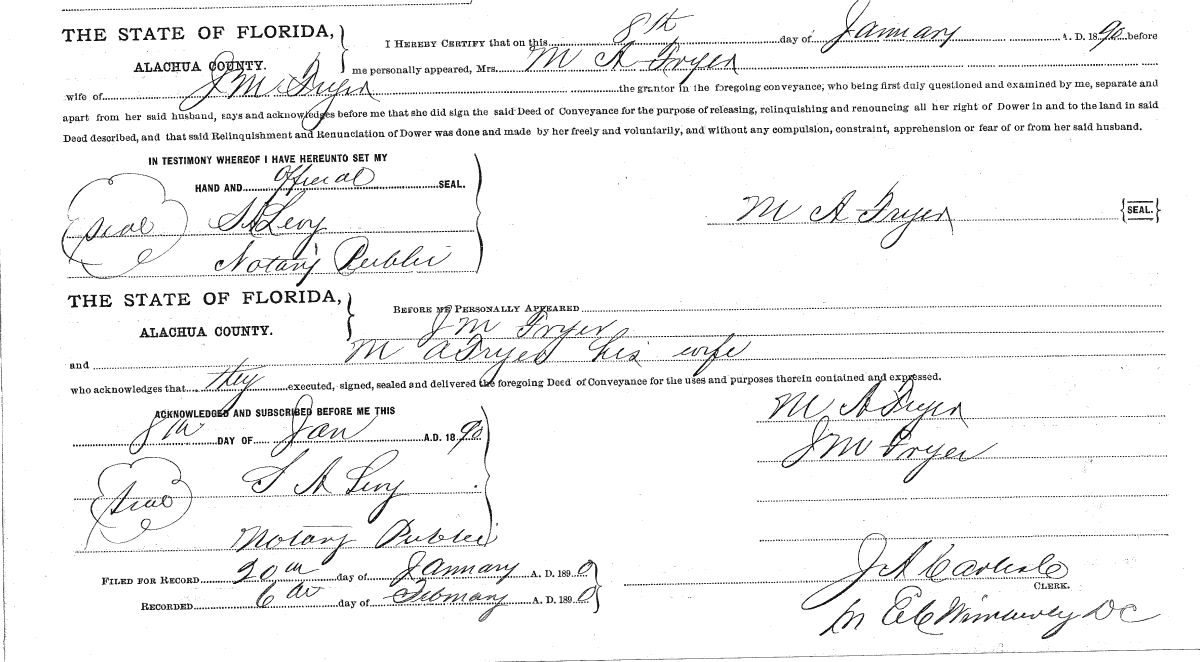 THE STATE OF FLORIDA,
ALACHUA COUNTY.
I HEREBY CERTIFY that on this 8th day of January A. D. 1890 before
me personally appeared, Mrs. M A Fryer
wife of J M Fryer the grantor in the foregoing conveyance, who being first duly questioned and examined by me, separate and
apart from her said husband, says and acknowledges before me that she did sign the said Deed of Conveyance for the purpose of releasing, relinquishing and renouncing all her right of Dower in and to the land in said
Deed described, and that said Relinquishment and Renunciation of Dower was done and made by her freely and voluntarily, and without any compulsion, constraint, apprehension or fear of or from her said husband.
IN TESTIMONY WHEREOF I HAVE HEREUNTO SET MY
HAND AND official SEAL.
Seal S A Levy
Notary Public
M A Fryer {SEAL.}
THE STATE OF FLORIDA,
ALACHUA COUNTY.
BEFORE ME PERSONALLY APPEARED
J M Fryer
and M A Fryer his wife
who acknowledges that they executed, signed, sealed and delivered the foregoing Deed of Conveyance for the uses and purposes therein contained and expressed.
ACKNOWLEDGED AND SUBSCRIBED BEFORE ME THIS
8th DAY OF Jan A.D. 1890
Seal S A Levy
Notary Public
M A Fryer
J M Fryer
FILED FOR RECORD 20th day of January A. D. 1890
RECORDED 6th day of February A. D. 1890
J A Carlisle
CLERK.
E C Wimberly DC